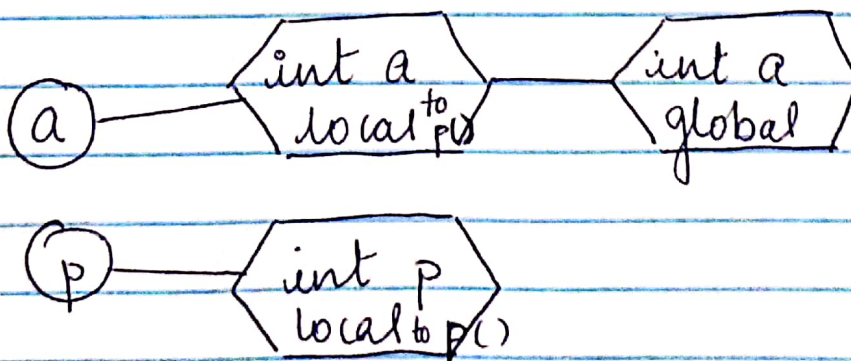 a
int a
local to p()
int a
global
p
int p
local to p()